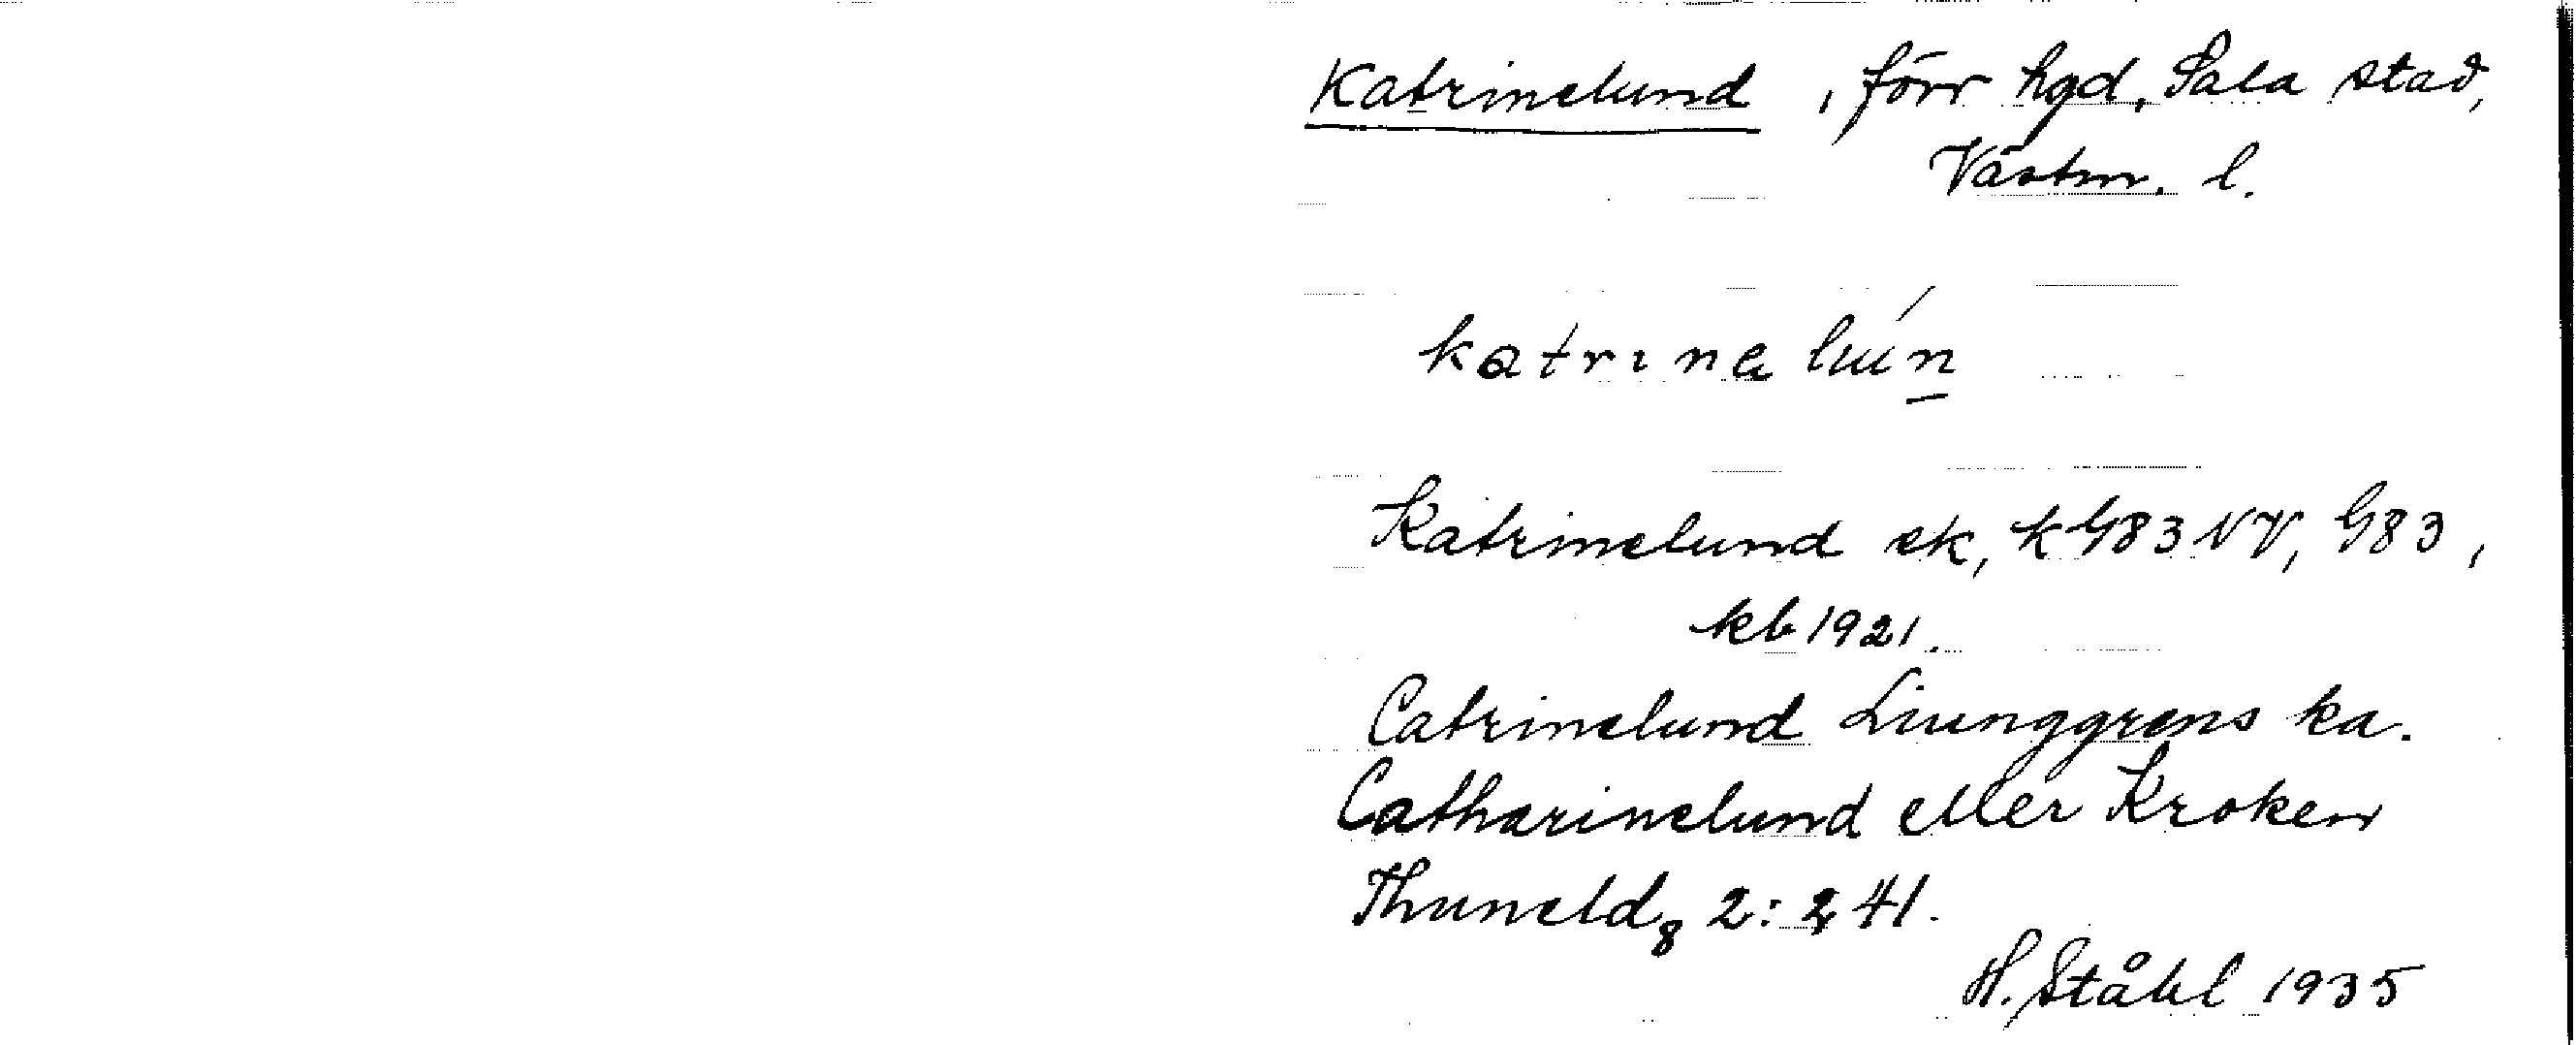 Katrinelund, förr hgd, Sala stad,
Västm. l.
katrinelún
Katrinelund ek, k G83 NV, G83,
kb 1921.
Catrinelund Liunggrens ka.
Catharinelund eller Kroken
Thuneld₈ 2:241.
H. Ståhl 1935